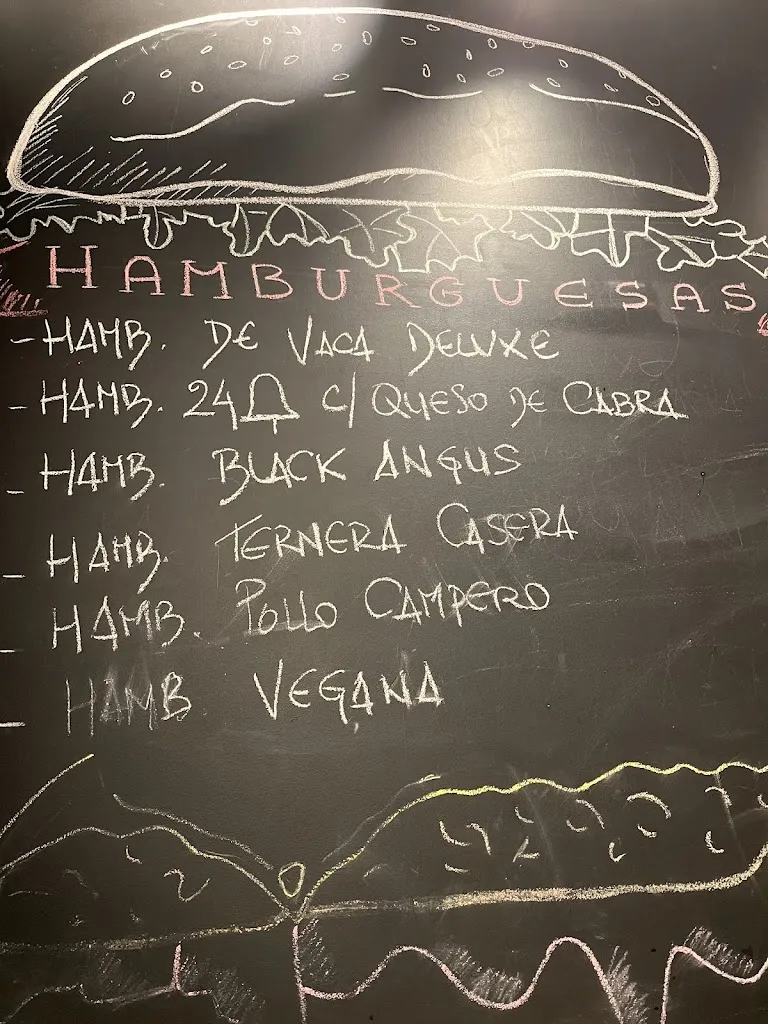 HAMBURGUESAS
- HAMB. DE VACA DELUXE
- HAMB. 24 C/ QUESO DE CABRA
- HAMB. BLACK ANGUS
- HAMB. TERNERA CASERA
- HAMB. POLLO CAMPERO
- HAMB VEGANA